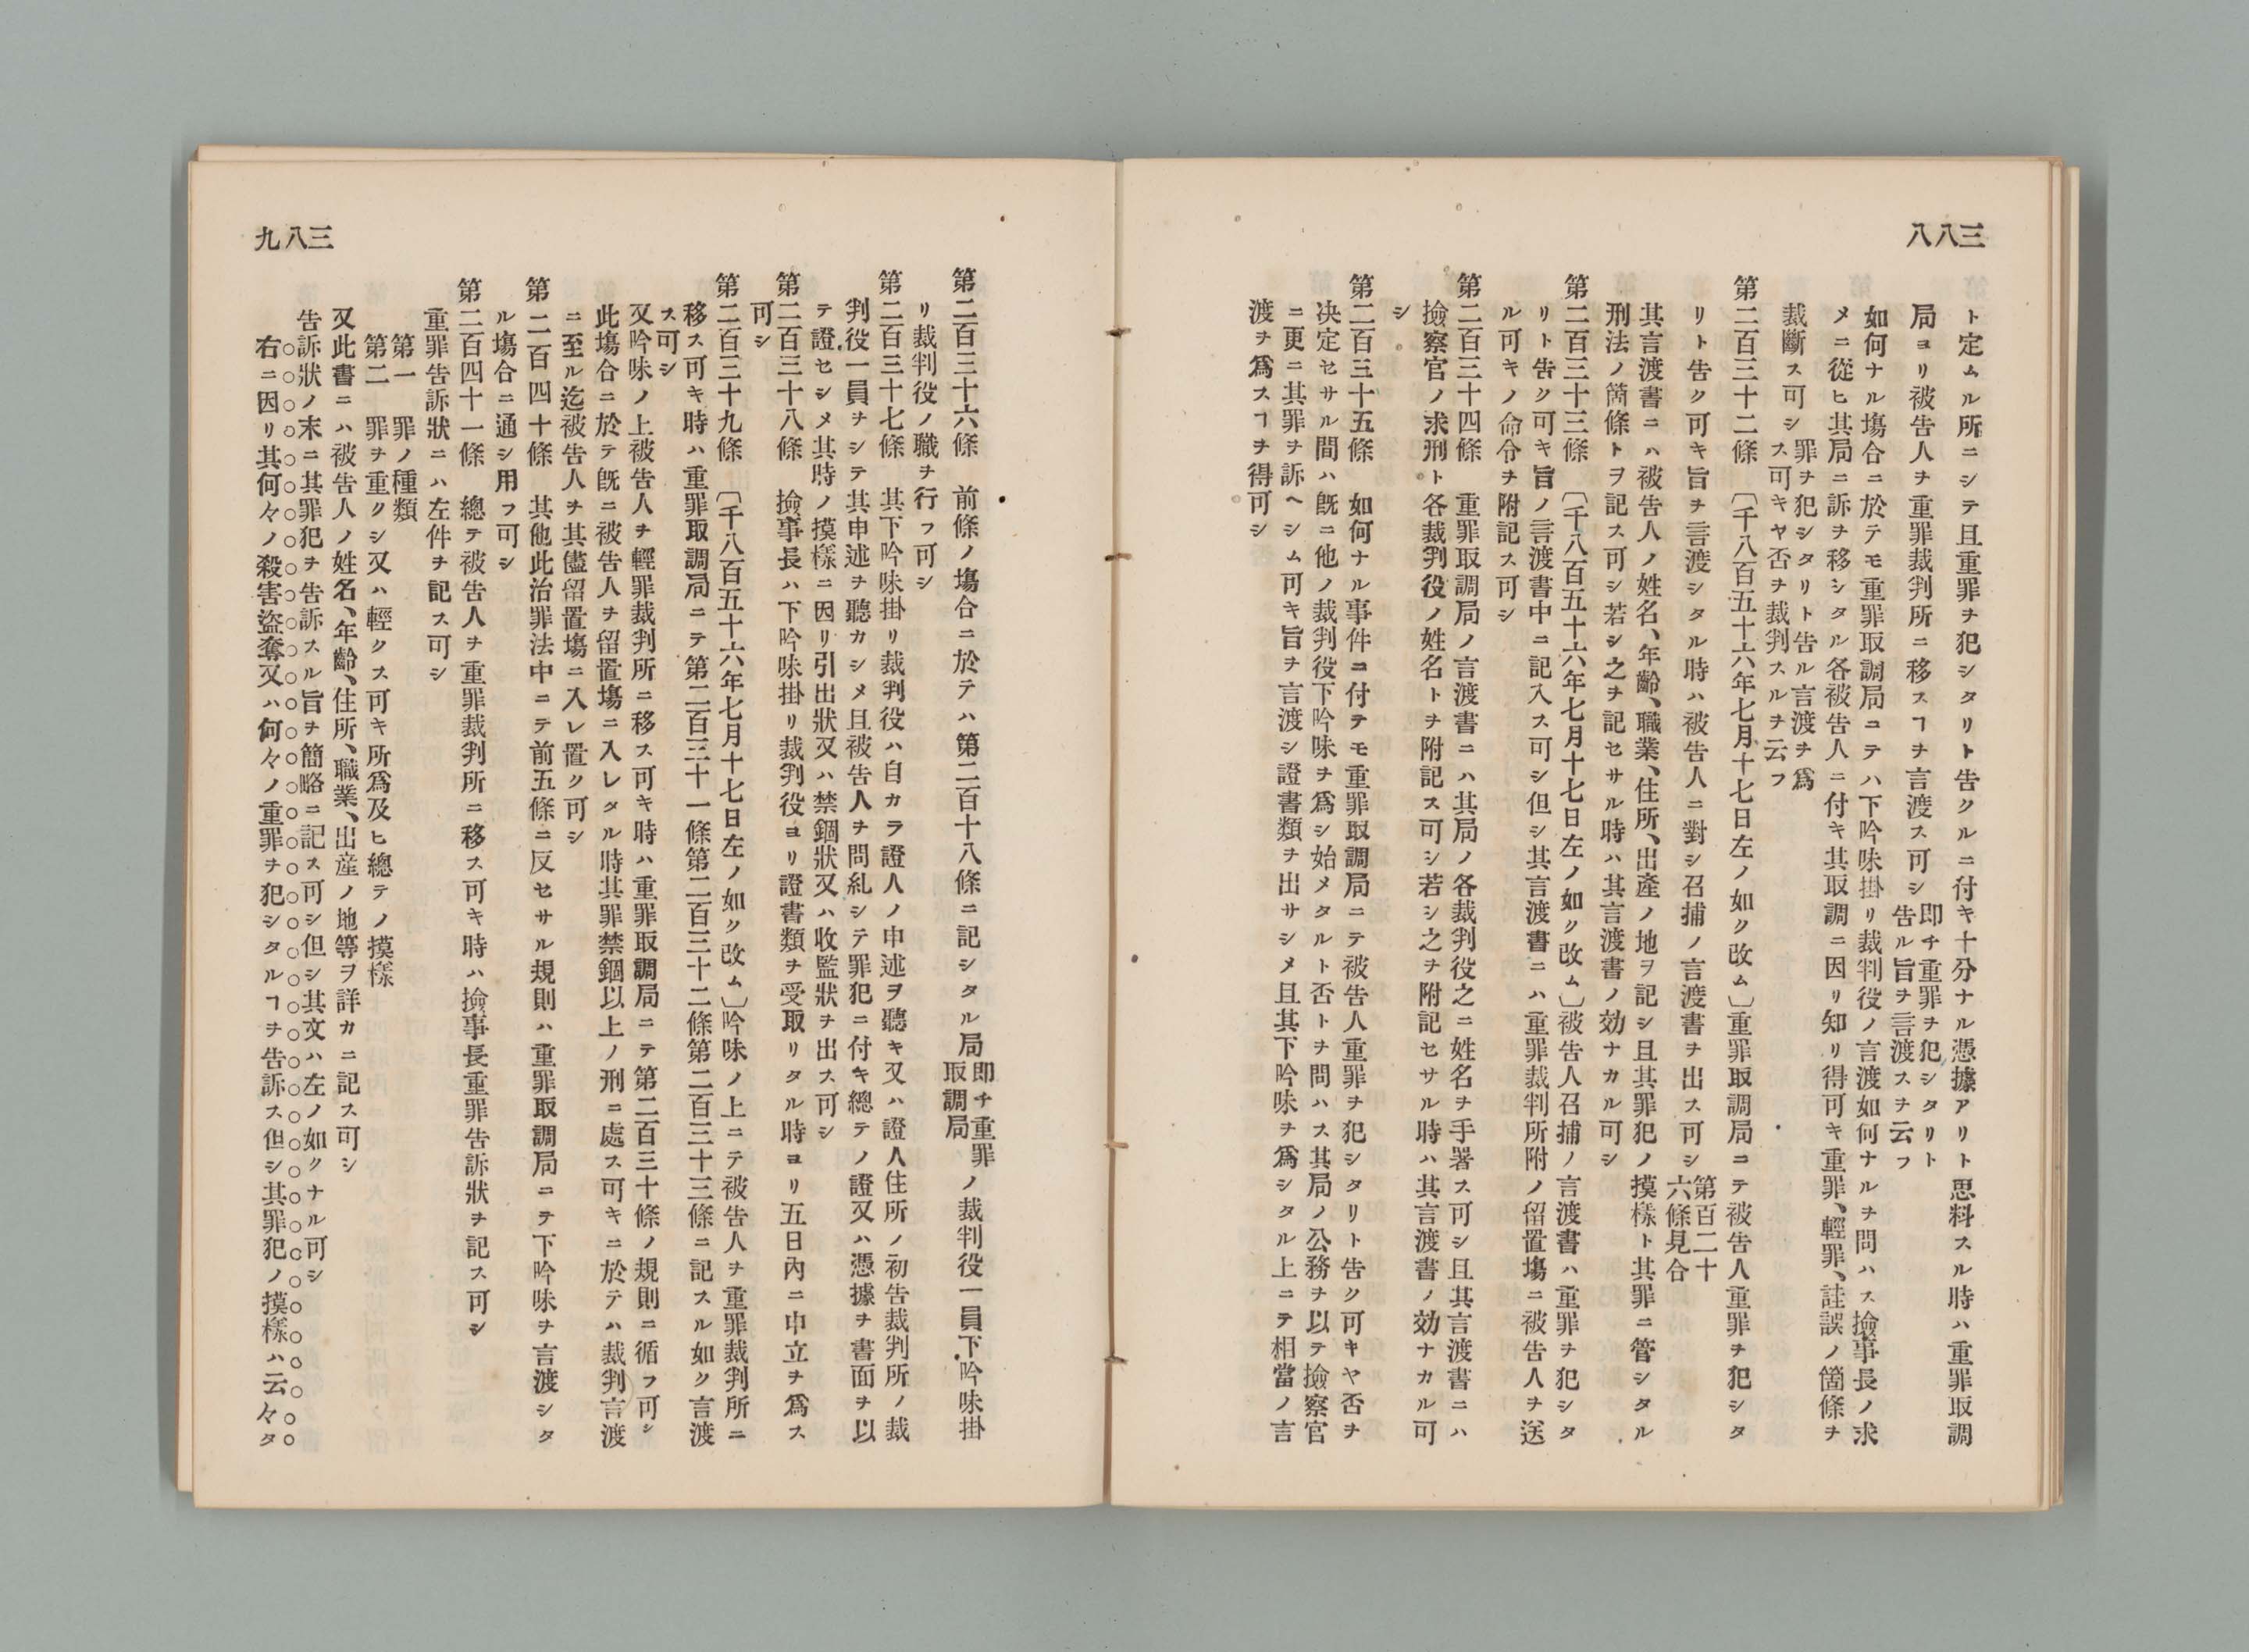 三八八
ト定ムル所ニシテ且重罪ヲ犯シタリト告クルニ付キ十分ナル憑據アリト思料スル時ハ重罪取調
局ヨリ被告人ヲ重罪裁判所ニ移スヿヲ言渡ス可シ
即チ重罪ヲ犯シタリト
告ル旨ヲ言渡スヲ云フ
如何ナル塲合ニ於テモ重罪取調局ニテハ下吟味掛リ裁判役ノ言渡如何ナルヲ問ハス撿事長ノ求
メニ從ヒ其局ニ訴ヲ移シタル各被告人ニ付キ其取調ニ因リ知リ得可キ重罪、輕罪、註誤ノ箇條ヲ
裁斷ス可シ
罪ヲ犯シタリト告ル言渡ヲ爲
ス可キヤ否ヲ裁判スルヲ云フ
第二百三十二條 〔千八百五十六年七月十七日左ノ如ク改ム〕重罪取調局ニテ被告人重罪ヲ犯シタ
リト告ク可キ旨ヲ言渡シタル時ハ被告人ニ對シ召捕ノ言渡書ヲ出ス可シ
第百二十
六條見合
其言渡書ニハ被告人ノ姓名、年齡、職業、住所、出產ノ地ヲ記シ且其罪犯ノ摸樣ト其罪ニ管シタル
刑法ノ箇條トヲ記ス可シ若シ之ヲ記セサル時ハ其言渡書ノ効ナカル可シ
第二百三十三條 〔千八百五十六年七月十七日左ノ如ク改ム〕被告人召捕ノ言渡書ハ重罪ヲ犯シタ
リト告ク可キ旨ノ言渡書中ニ記入ス可シ但シ其言渡書ニハ重罪裁判所附ノ留置塲ニ被告人ヲ送
ル可キノ命令ヲ附記ス可シ
第二百三十四條 重罪取調局ノ言渡書ニハ其局ノ各裁判役之ニ姓名ヲ手署ス可シ且其言渡書ニハ
撿察官ノ求刑ト各裁判役ノ姓名トヲ附記ス可シ若シ之ヲ附記セサル時ハ其言渡書ノ効ナカル可
シ
第二百三十五條 如何ナル事件ニ付テモ重罪取調局ニテ被告人重罪ヲ犯シタリト告ク可キヤ否ヲ
決定セサル間ハ旣ニ他ノ裁判役下吟味ヲ爲シ始メタルト否トヲ問ハス其局ノ公務ヲ以テ撿察官
ニ更ニ其罪ヲ訴ヘシム可キ旨ヲ言渡シ證書類ヲ出サシメ且其下吟味ヲ爲シタル上ニテ相當ノ言
渡ヲ爲スヿヲ得可シ
三八九
第二百三十六條 前條ノ塲合ニ於テハ第二百十八條ニ記シタル局
即チ重罪
取調局
ノ裁判役一員下吟味掛
リ裁判役ノ職ヲ行フ可シ
第二百三十七條 其下吟味掛リ裁判役ハ自カラ證人ノ申述ヲ聽キ又ハ證人住所ノ初告裁判所ノ裁
判役一員ヲシテ其申述ヲ聽カシメ且被告人ヲ問糺シテ罪犯ニ付キ總テノ證又ハ憑據ヲ書面ヲ以
テ證セシメ其時ノ摸樣ニ因リ引出狀又ハ禁錮狀又ハ收監狀ヲ出ス可シ
第二百三十八條 撿事長ハ下吟味掛リ裁判役ヨリ證書類ヲ受取リタル時ヨリ五日內ニ申立ヲ爲ス
可シ
第二百三十九條 〔千八百五十六年七月十七日左ノ如ク改ム〕吟味ノ上ニテ被告人ヲ重罪裁判所ニ
移ス可キ時ハ重罪取調局ニテ第二百三十一條第二百三十二條第二百三十三條ニ記スル如ク言渡
ス可シ
又吟味ノ上被告人ヲ輕罪裁判所ニ移ス可キ時ハ重罪取調局ニテ第二百三十條ノ規則ニ循フ可シ
此塲合ニ於テ旣ニ被告人ヲ留置塲ニ入レタル時其罪禁錮以上ノ刑ニ處ス可キニ於テハ裁判言渡
ニ至ル迄被告人ヲ其儘留置塲ニ入レ置ク可シ
第二百四十條 其他此治罪法中ニテ前五條ニ反セサル規則ハ重罪取調局ニテ下吟味ヲ言渡シタ
ル塲合ニ通シ用フ可シ
第二百四十一條 總テ被告人ヲ重罪裁判所ニ移ス可キ時ハ撿事長重罪告訴狀ヲ記ス可シ
重罪告訴狀ニハ左件ヲ記ス可シ
第一 罪ノ種類
第二 罪ヲ重クシ又ハ輕クス可キ所爲及ヒ總テノ摸樣
又此書ニハ被告人ノ姓名、年齡、住所、職業、出產ノ地等ヲ詳カニ記ス可シ
告訴狀ノ末ニ其罪犯ヲ告訴スル旨ヲ簡略ニ記ス可シ但シ其文ハ左ノ如クナル可シ
右ニ因リ其何々ノ殺害盜奪又ハ何々ノ重罪ヲ犯シタルヿヲ告訴ス但シ其罪犯ノ摸樣ハ云々タ